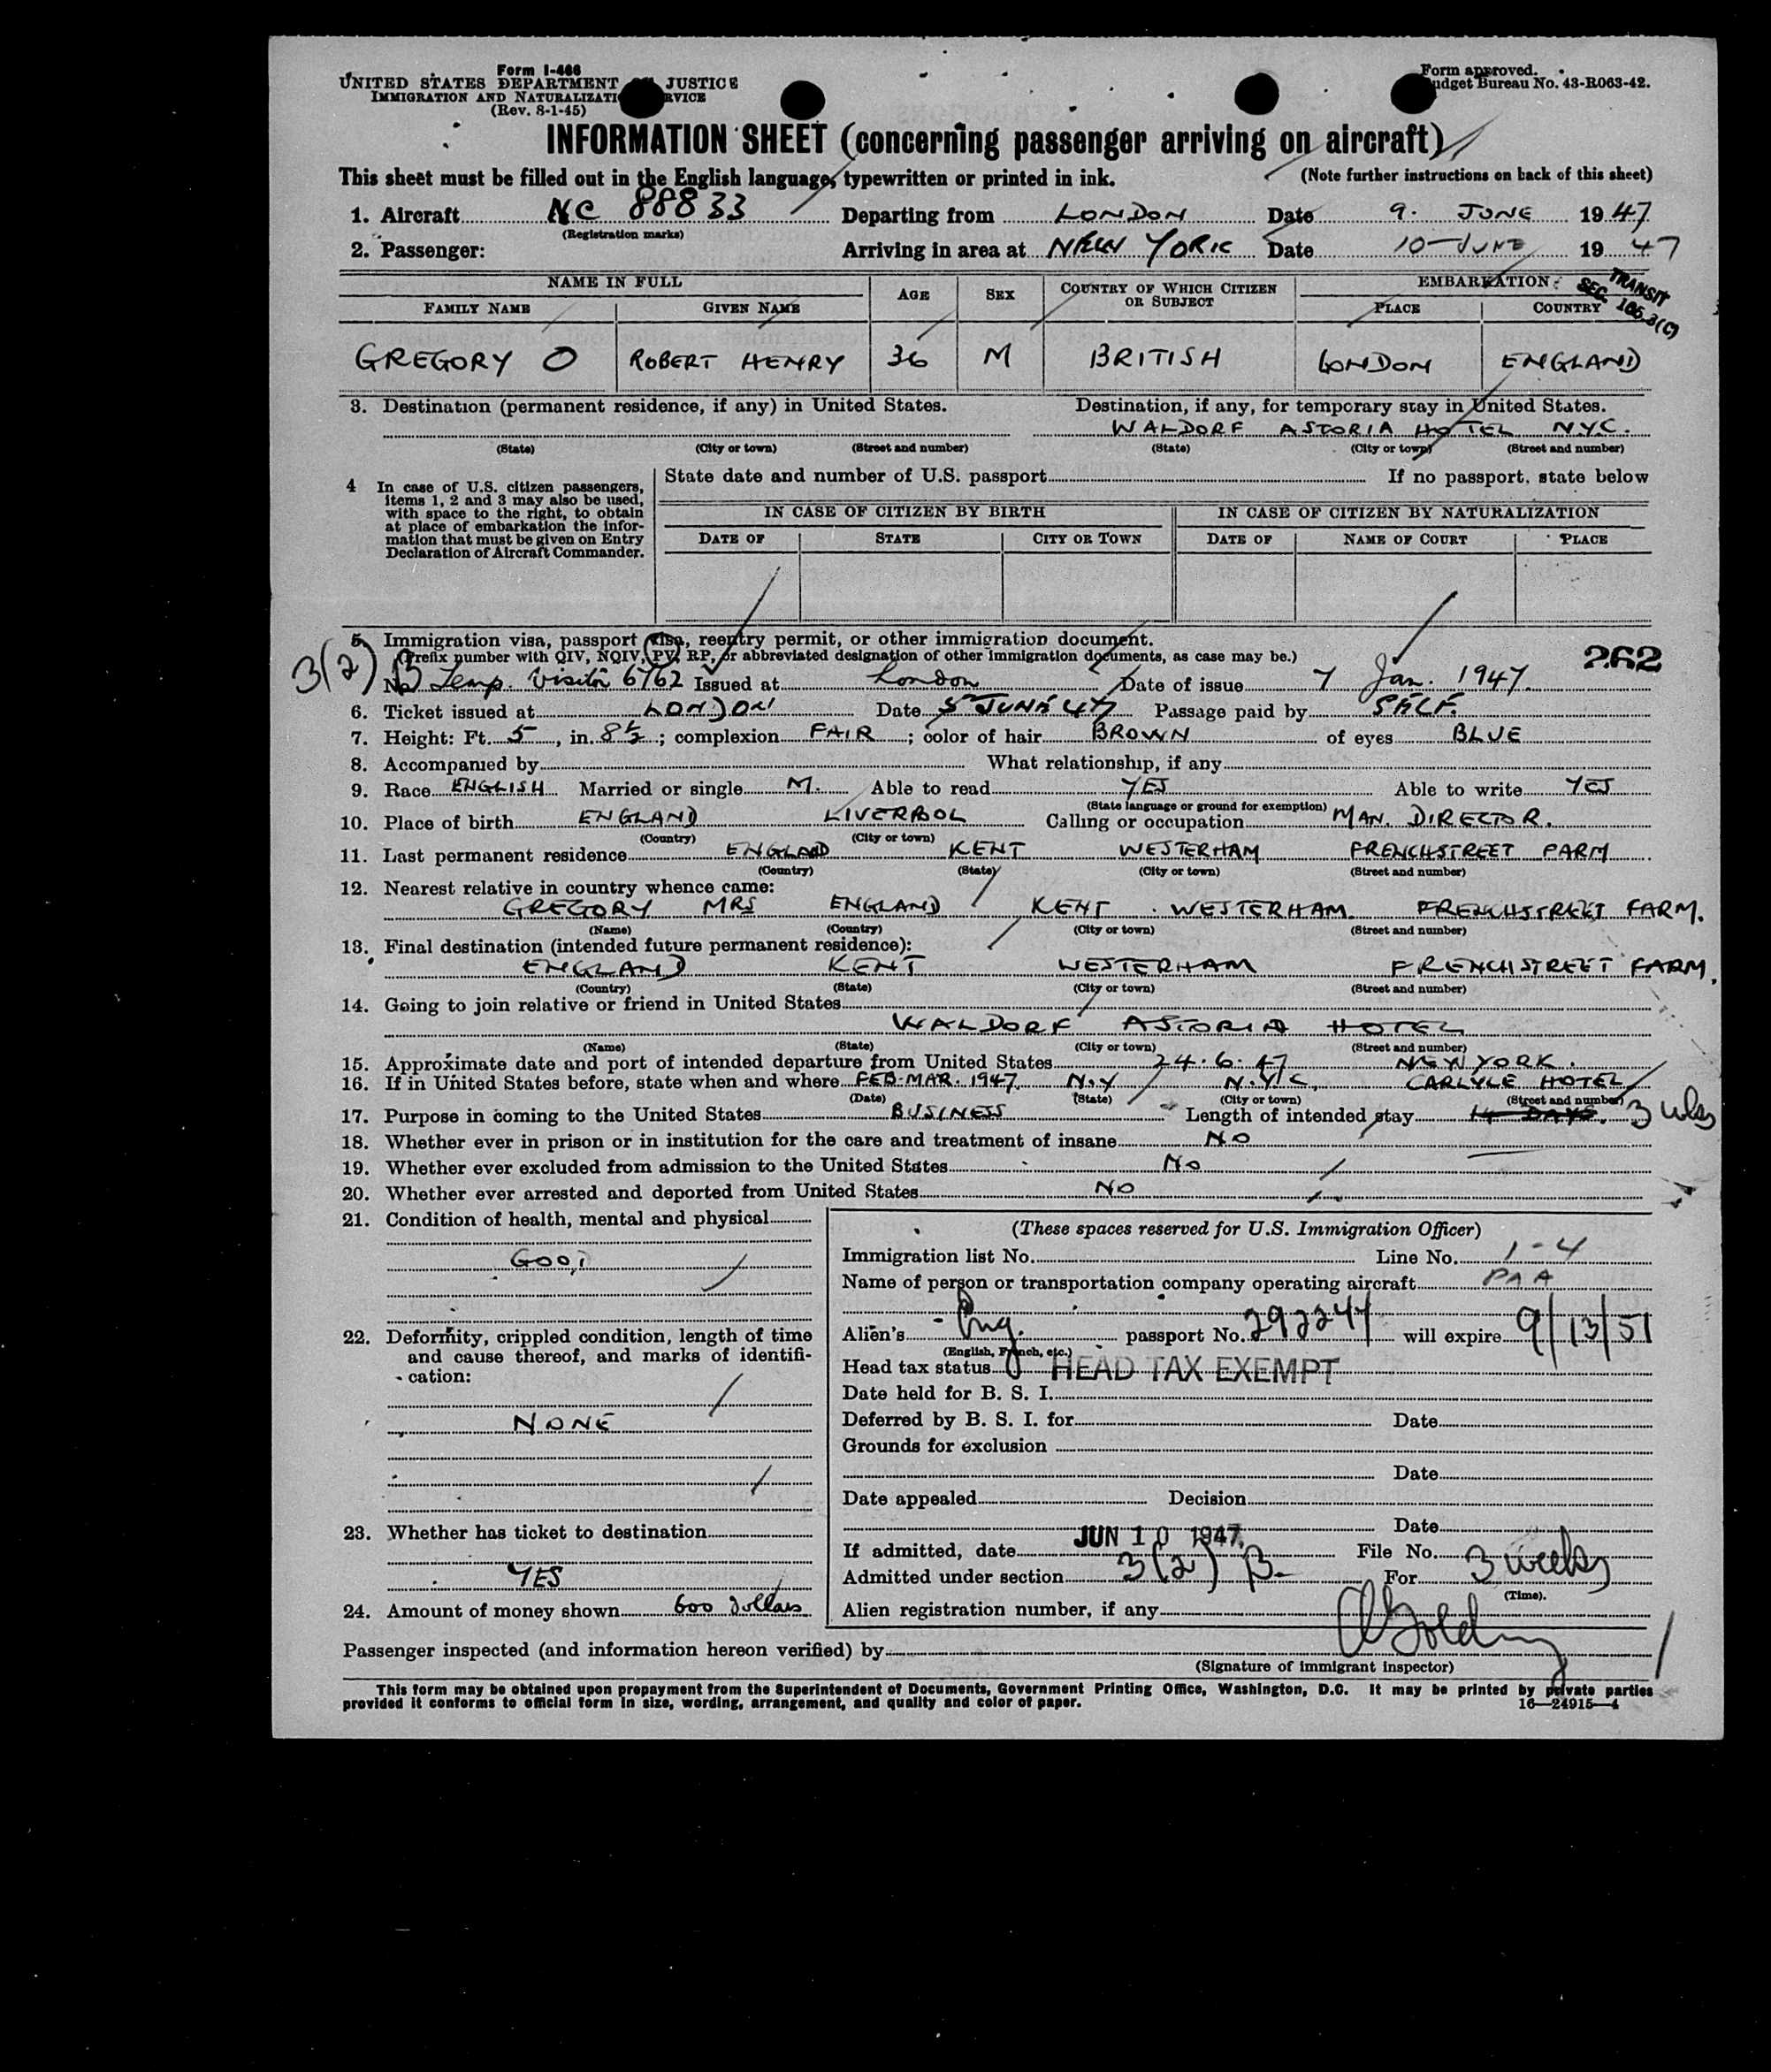 Form I-466
UNITED STATES DEPARTMENT JUSTICE
IMMIGRATION AND NATURALIZATI RVICE
(Rev. 8-1-45)
Form approved.
udget Bureau No. 43-R063-42.
INFORMATION SHEET (concerning passenger arriving on aircraft)
This sheet must be filled out in the English language, typewritten or printed in ink. (Note further instructions on back of this sheet)
1. Aircraft NC 88833 Departing from LONDON Date 9. JUNE 1947
(Registration marks)
2. Passenger: Arriving in area at NEW YORK Date 10-JUNE 1947
NAME IN FULL AGE SEX COUNTRY OF WHICH CITIZEN OR SUBJECT EMBARKATION
TRANSIT
SEC. 165.3(C)
FAMILY NAME GIVEN NAME PLACE COUNTRY
GREGORY O ROBERT HENRY 36 M BRITISH LONDON ENGLAND
3. Destination (permanent residence, if any) in United States. Destination, if any, for temporary stay in United States.
WALDORF ASTORIA HOTEL NYC.
(State) (City or town) (Street and number) (State) (City or town) (Street and number)
4 In case of U.S. citizen passengers, items 1, 2 and 3 may also be used, with space to the right, to obtain at place of embarkation the information that must be given on Entry Declaration of Aircraft Commander.
State date and number of U.S. passport If no passport, state below
IN CASE OF CITIZEN BY BIRTH IN CASE OF CITIZEN BY NATURALIZATION
DATE OF STATE CITY OR TOWN DATE OF NAME OF COURT PLACE
5. Immigration visa, passport visa, reentry permit, or other immigration document.
(Prefix number with QIV, NQIV, PV, RP, or abbreviated designation of other immigration documents, as case may be.) 262
3(2) B
No. Temp. Visitor 6762 Issued at London Date of issue 7 Jan. 1947.
6. Ticket issued at LONDON Date 5th JUNE 47 Passage paid by SELF.
7. Height: Ft. 5, in. 8½; complexion FAIR; color of hair BROWN of eyes BLUE
8. Accompanied by What relationship, if any
9. Race ENGLISH Married or single M. Able to read YES Able to write YES
(State language or ground for exemption)
10. Place of birth ENGLAND LIVERPOOL Calling or occupation MAN. DIRECTOR.
(Country) (City or town)
11. Last permanent residence ENGLAND KENT WESTERHAM FRENCHSTREET FARM
(Country) (State) (City or town) (Street and number)
12. Nearest relative in country whence came:
GREGORY MRS ENGLAND KENT WESTERHAM FRENCHSTREET FARM.
(Name) (Country) (City or town) (Street and number)
13. Final destination (intended future permanent residence):
ENGLAND KENT WESTERHAM FRENCHSTREET FARM.
(Country) (State) (City or town) (Street and number)
14. Going to join relative or friend in United States
WALDORF ASTORIA HOTEL
(Name) (State) (City or town) (Street and number)
15. Approximate date and port of intended departure from United States 24.6.47 NEW YORK.
16. If in United States before, state when and where FEB-MAR. 1947. N.Y N.Y.C. CARLYLE HOTEL
(Date) (State) (City or town) (Street and number)
17. Purpose in coming to the United States BUSINESS Length of intended stay 14 DAYS. 3 wks
18. Whether ever in prison or in institution for the care and treatment of insane NO
19. Whether ever excluded from admission to the United States No
20. Whether ever arrested and deported from United States NO
21. Condition of health, mental and physical
GOOD
22. Deformity, crippled condition, length of time and cause thereof, and marks of identification:
NONE
23. Whether has ticket to destination
YES
24. Amount of money shown 600 dollars
(These spaces reserved for U.S. Immigration Officer)
Immigration list No. Line No. 1-4
Name of person or transportation company operating aircraft PAA
Alien's Eng. passport No. 292244 will expire 9/13/51
(English, French, etc.)
Head tax status HEAD TAX EXEMPT
Date held for B. S. I.
Deferred by B. S. I. for Date
Grounds for exclusion
Date
Date appealed Decision
Date
If admitted, date JUN 10 1947 File No.
Admitted under section 3(2) B. For 3 weeks
(Time).
Alien registration number, if any
Passenger inspected (and information hereon verified) by
(Signature of immigrant inspector)
This form may be obtained upon prepayment from the Superintendent of Documents, Government Printing Office, Washington, D.C. It may be printed by private parties
provided it conforms to official form in size, wording, arrangement, and quality and color of paper. 16—24915—4